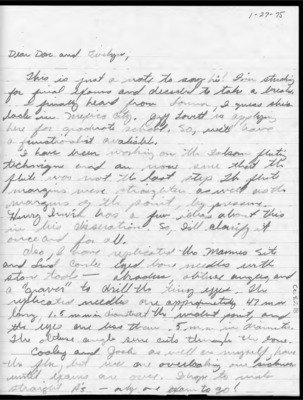 1-27-75
Dear Doc and Evelyn,
This is just a note to say hi! I'm studying
for final exams and decided to take a break.
I finally heard from I guess she's
back in Mexico City. Jeff is applying
here for graduate school. So, we'll have
a functionalist available.
I have been working on the Folsom fluting
technique and am now sure that the
flute was not the last step. The flute
margins were straightened as well as the
margins of the point, by pressure.
Henry Irwin has a few ideas about this
in his dissertation. So, I'll clarify it
once and for all.
Also, I have replicated the Mammes Site
and Lind eyed bone needles with
stone tools — abraders, obtuse angles and
a "graver" to drill the tiny eyes. The
replicated needles are approximately 47 mm
long, 1.8 mm in diameter at the widest point, and
the eyes are less than .5 mm in diameter.
The obtuse angle sure cuts through the bone.
Cooley and Josh as well as myself have
the flu, but we are overlooking our sickness
until exams are over. I hope to make
straight A's — only one exam to go!